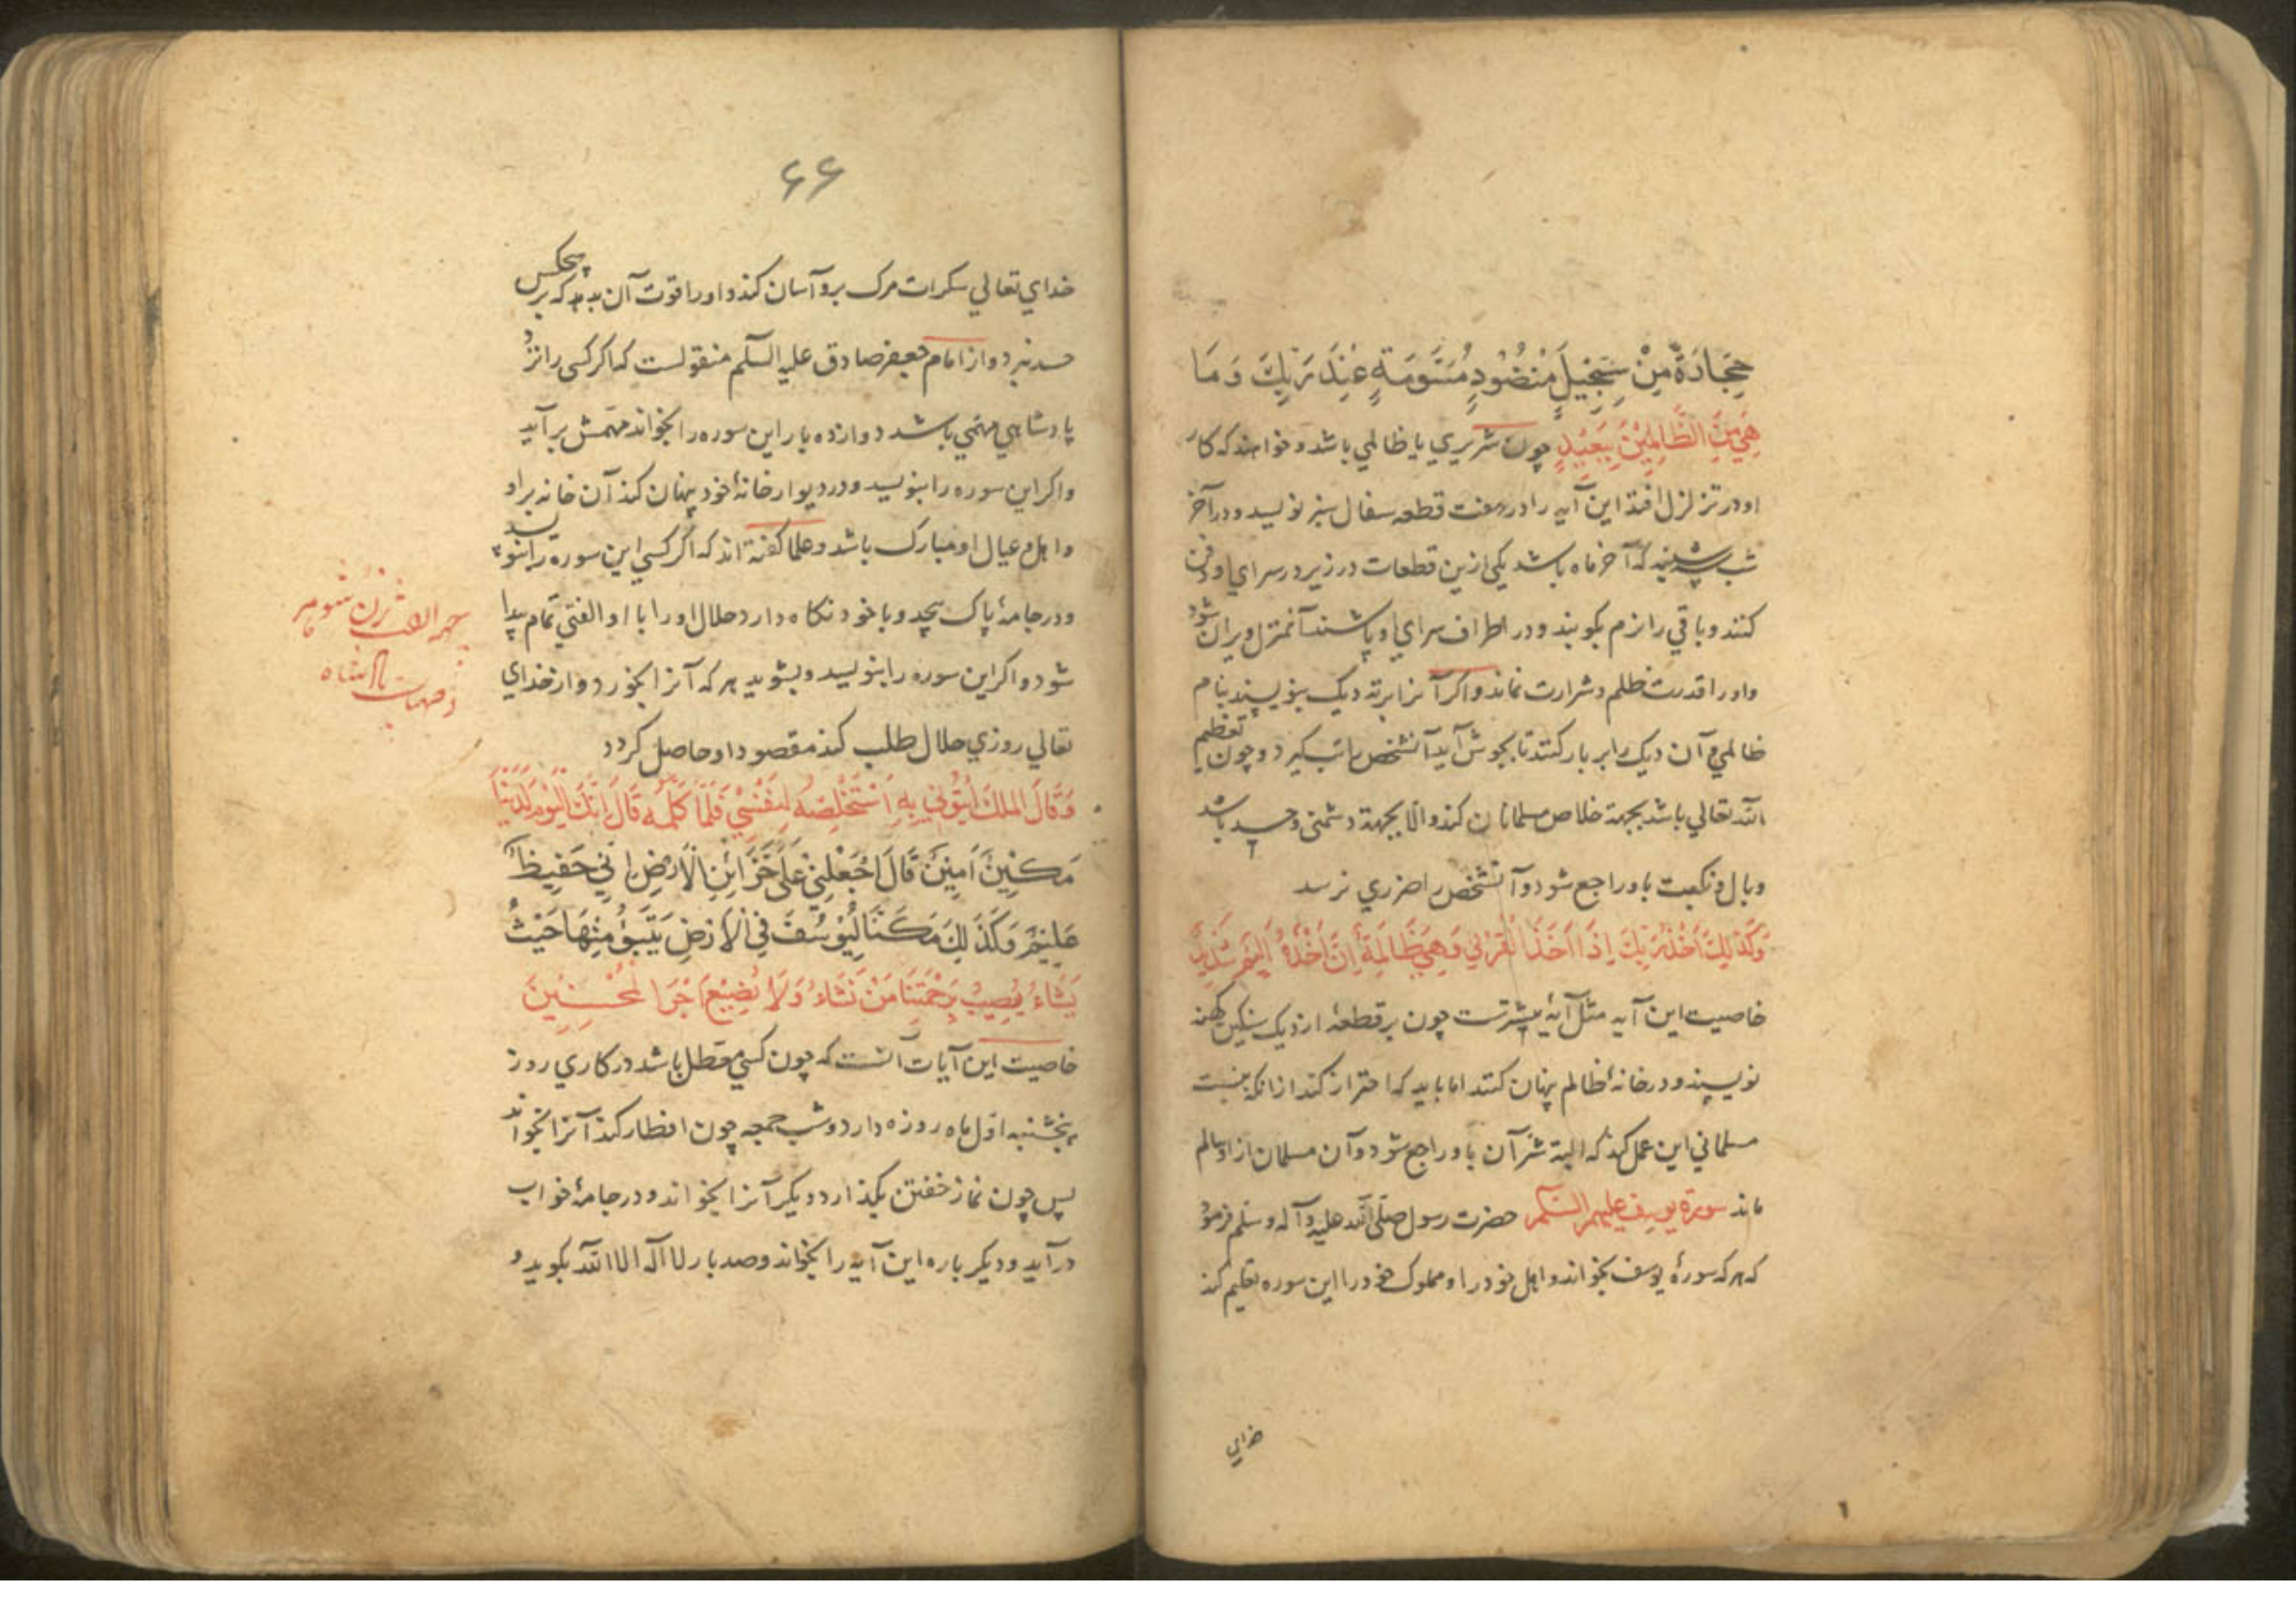 حِجَارَةً مِنْ سِجِّيلٍ مَنْضُودٍ مُسَوَّمَةً عِنْدَ رَبِّكَ وَمَا
هِيَ مِنَ الظَّالِمِيْنَ بِبَعِيْدٍ چون شريري يا ظالمي باشد و خواهند كه كار
او در تزلزل افتد اين آيه را در هفت قطعه سفال سبز نويسد و در آخر
شب شنبه كه آخر ماه باشد يكى ازين قطعات در زير در سراي او دفن
كنند و باقي را نرم بكوبند و در اطراف سراي او پاشند آنمنزل ويران شود
و او را قدرت ظلم و شرارت نماند و اكر آنرا بر ته ديك بنويسند بنام
ظالمي و آن ديك را بر بار كنند تا بجوش آيد آنشخص را تب كيرد و چون تعظيم
الله تعالي باشد بجهة خلاص مسلمانان كند و الا بجهة دشمنى و حسد باشد
وبال و نكبت باو راجع شود و آنشخص را ضرري نرسد
وَكَذَلِكَ اَخْذُ رَبِّكَ اِذَا اَخَذَ الْقُرٰي وَهِيَ ظَالِمَةٌ اِنَّ اَخْذَهُ اَلِيْمٌ شَدِيْدٌ
خاصيت اين آيه مثل آيهٔ پيشترست چون بر قطعهٔ از ديك سنكين كهنه
نويسند و در خانهٔ ظالم پنهان كنند اما بايد كه احتراز كند ازانكه بنسبت
مسلماني اين عمل كند كه البته شر آن باو راجع شود و آن مسلمان ازو سالم
ماند سورة يوسف عليهم السلم حضرت رسول صلّى الله عليه و آله وسلم فرمود
كه هر كه سورهٔ يوسف بخواند و اهل خود را و مملوك خود را اين سوره تعليم كند
خداي
۶۶
خداي تعالي سكرات مرك برو آسان كند و او را قوت آن بدهد كه بر هيچكس
حسد نبرد و از امام جعفر صادق عليه السلم منقولست كه اكر كسى را نزد
پادشاهي مهمي باشد دوازده بار اين سوره را بخواند مهمش برآيد
و اكر اين سوره را بنويسد و در ديوار خانهٔ خود پنهان كند آن خانه بر او
و اهل و عيال او مبارك باشد و علما كفته اند كه اكر كسي اين سوره را بنويسد
و در جامهٔ پاك پيچد و با خود نكاه دارد حلال او را با او الفتي تمام پيدا
شود و اكر اين سوره را بنويسد و بشويد هر كه آنرا بخورد و از خداي
تعالي روزي حلال طلب كند مقصود او حاصل كردد
وَقَالَ الْمَلِكُ ائْتُوْنِي بِهِ اَسْتَخْلِصْهُ لِنَفْسِيْ فَلَمَّا كَلَّمَهُ قَالَ اِنَّكَ الْيَوْمَ لَدَيْنَا
مَكِيْنٌ اَمِيْنٌ قَالَ اجْعَلْنِيْ عَلَى خَزَائِنِ الْاَرْضِ اِنِّي حَفِيظٌ
عَلِيْمٌ وَكَذَلِكَ مَكَّنَّا لِيُوْسُفَ فِي الْاَرْضِ يَتَبَوَّءُ مِنْهَا حَيْثُ
يَشَاءُ نُصِيْبُ بِرَحْمَتِنَا مَنْ نَشَاءُ وَلَا نُضِيْعُ اَجْرَ الْمُحْسِنِيْنَ
خاصيت اين آيات آنست كه چون كسي معطل باشد در كاري روز
پنجشنبه اول ماه روزه دارد و شب جمعه چون افطار كند آنرا بخواند
پس چون نماز خفتن بكذارد ديكر آنرا بخواند و در جامهٔ خواب
درآيد و ديكر باره اين آيه را بخواند و صد بار لا اله الا الله بكويد و